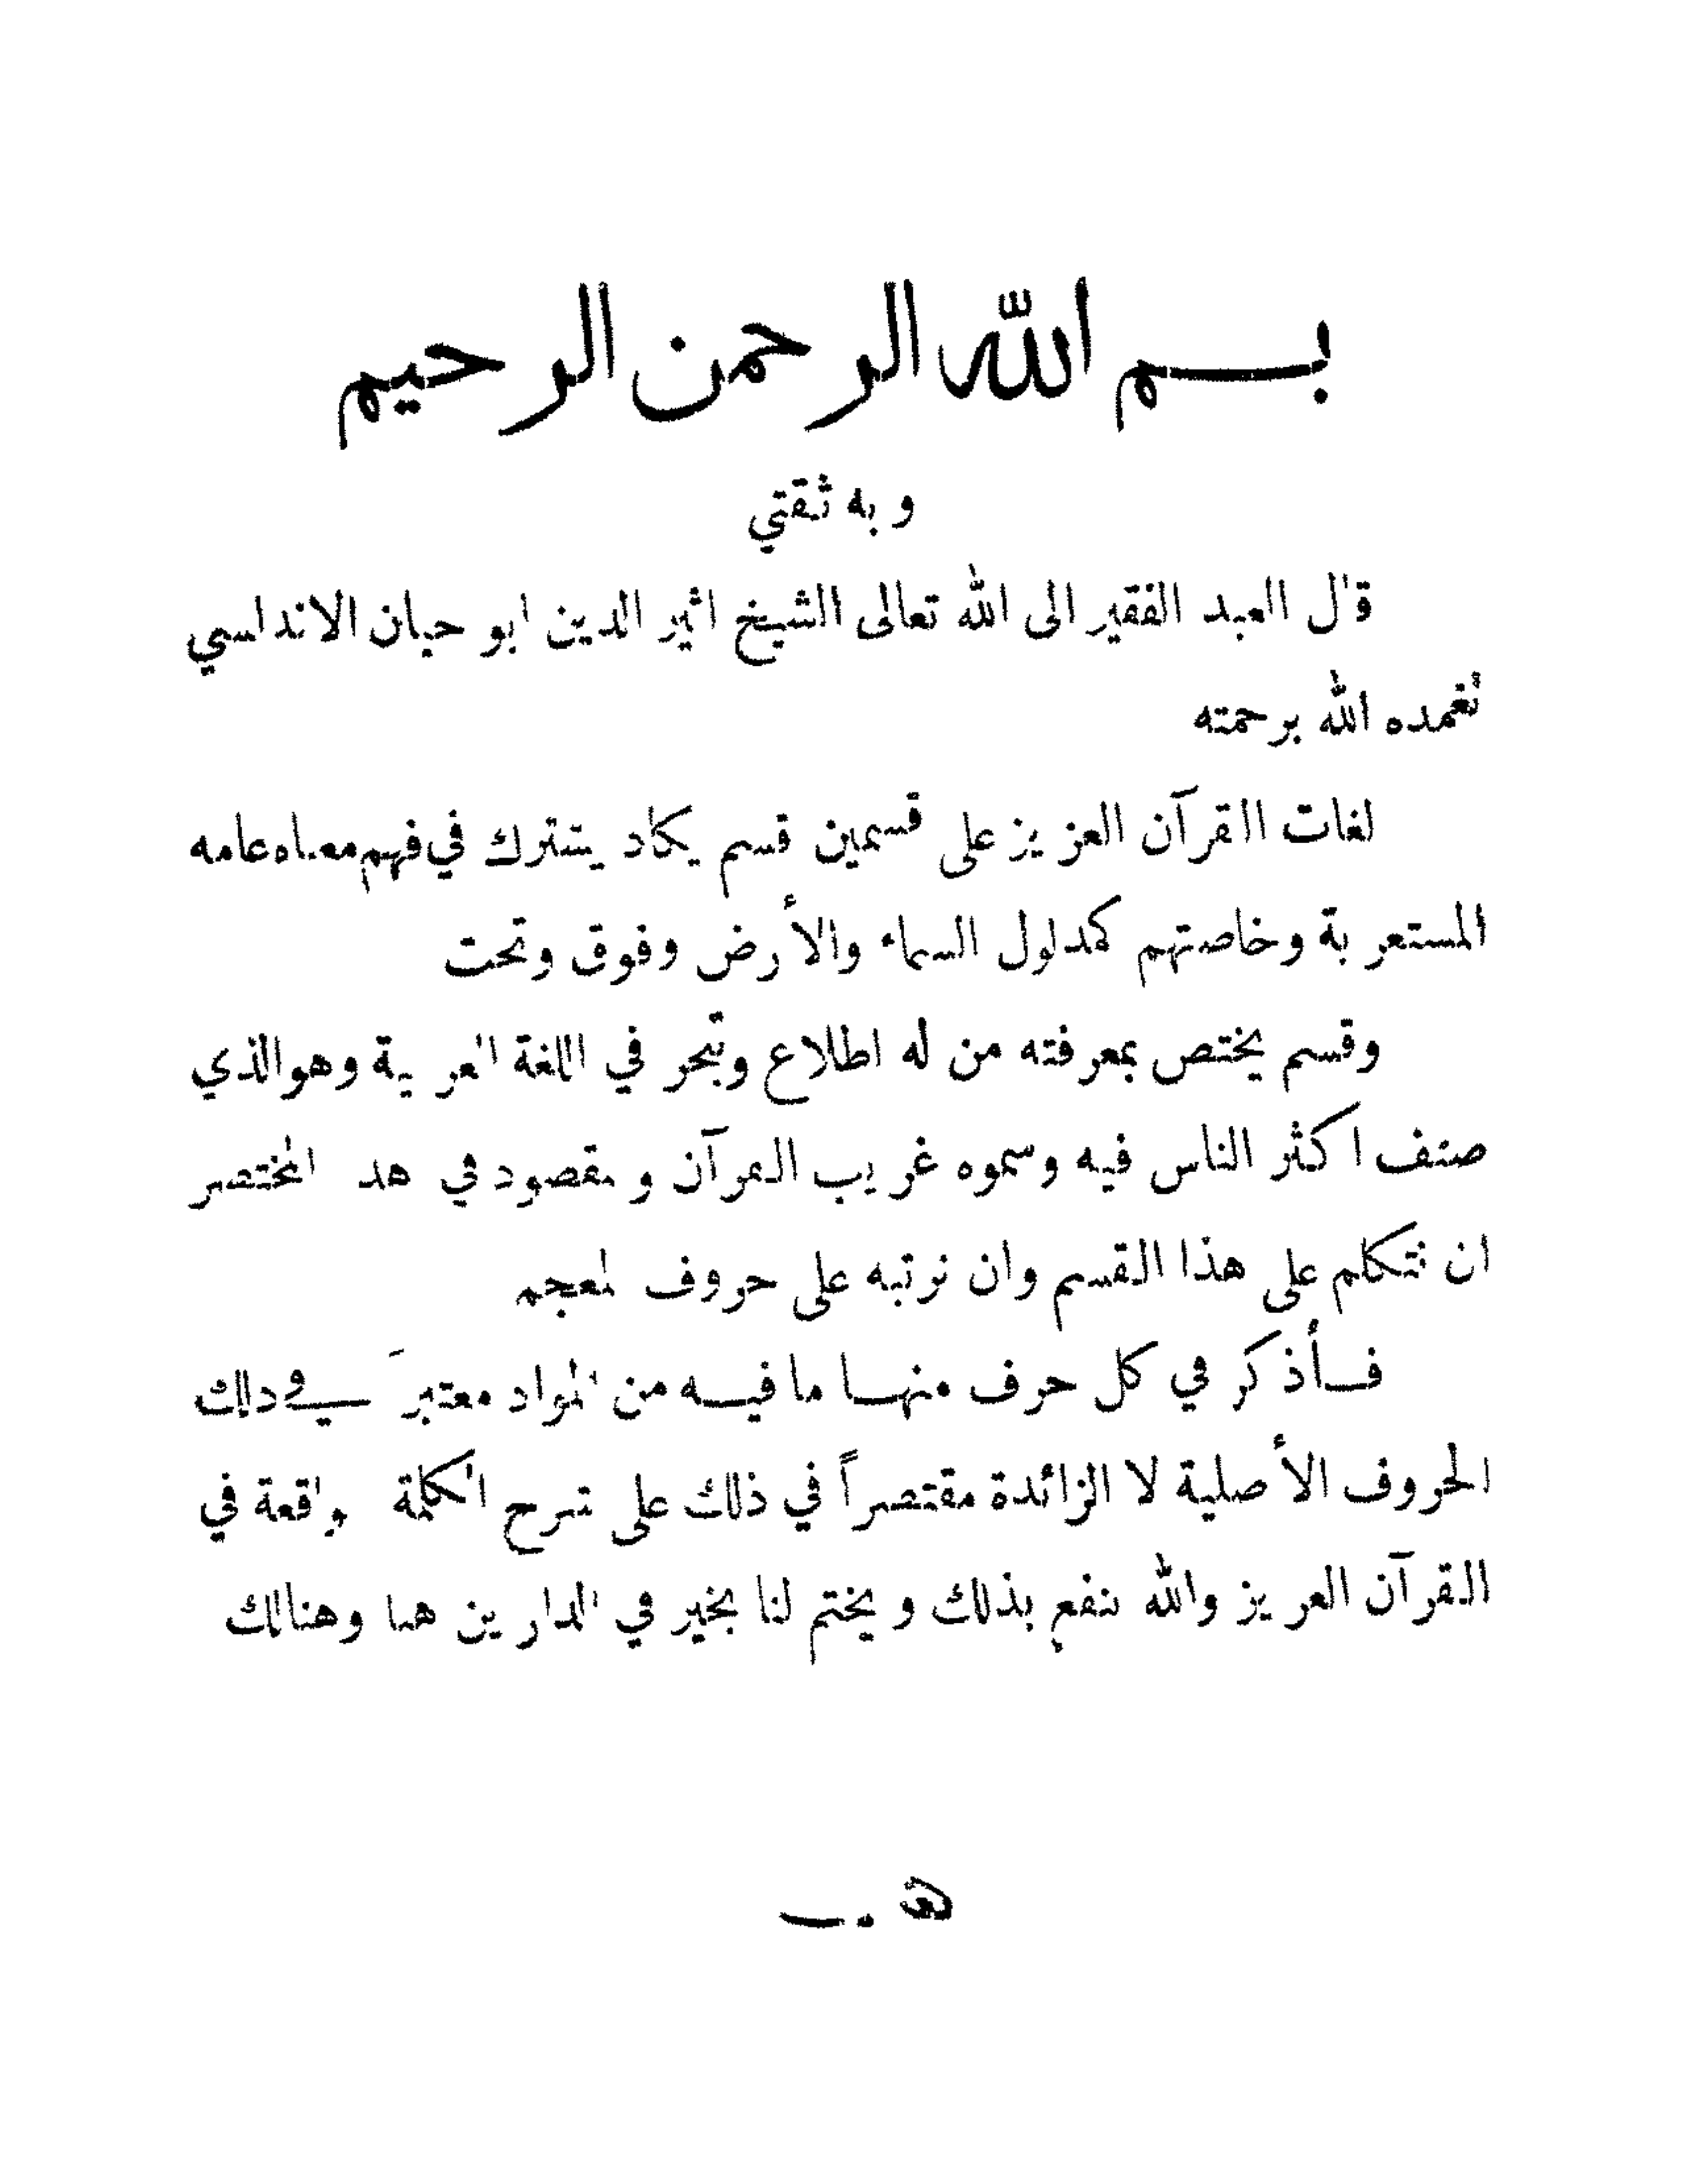 بسم الله الرحمن الرحيم
وبه ثقتي
قال العبد الفقير الى الله تعالى الشيخ اثير الدين ابو حيان الاندلسي
تغمده الله برحمته
لغات القرآن العزيز على قسمين قسم يكاد يشترك في فهم معناه عامه
المستعربة وخاصتهم كمدلول السماء والأرض وفوق وتحت
وقسم يختص بمعرفته من له اطلاع وتبحر في اللغة العربية وهو الذي
صنف اكثر الناس فيه وسموه غريب القرآن و مقصود في هذ المختصر
ان نتكلم على هذا القسم وان نرتبه على حروف المعجم
فأذكر في كل حرف منها ما فيه من المواد معتبر في ذلك
الحروف الأصلية لا الزائدة مقتصراً في ذلك على شرح الكلمة واقعة في
القرآن العزيز والله ينفع بذلك ويختم لنا بخير في الدارين هنا وهنالك